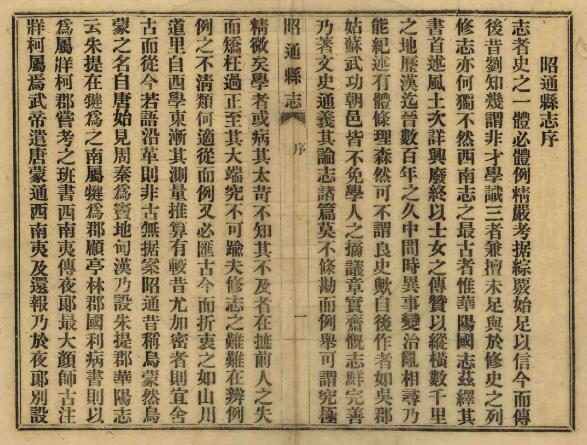 昭通縣志序
志者史之一體必體例精嚴考據綜覈始足以信今而傳
後昔劉知幾謂非才學識三者兼擅未足與於修史之列
修志亦何獨不然西南志之最古者惟華陽國志茲繹其
書首述風土次詳興廢終以士女之傳贊以縱橫數千里
之地歷漢迄晉數百年之久中間時異事變治亂相尋乃
能紀述有體條理森然可不謂良史歟自後作者如吳郡
姑蘇武功朝邑皆不免學人之摘議章實齋慨志鮮完善
乃著文史通義其論志諸篇莫不條勘而例舉可謂究極
昭通縣志 序 一
精微矣學者或病其太苛不知其不及者在摭前人之失
而矯枉過正至其大端究不可踰夫修志之難難在辨例
例之不清類何適從而例又必匯古今而折衷之如山川
道里自西學東漸其測量推算有較昔尤加密者則宜舍
古而從今若語沿革則非古無據案昭通昔稱烏蒙然烏
蒙之名自唐始見周秦爲竇地甸漢乃設朱提郡華陽志
云朱提在犍爲之南屬犍爲郡顧亭林郡國利病書則以
爲屬牂柯郡嘗考之班書西南夷傳夜郞最大顏師古注
牂柯屬焉武帝遣唐蒙通西南夷及還報乃於夜郞別設